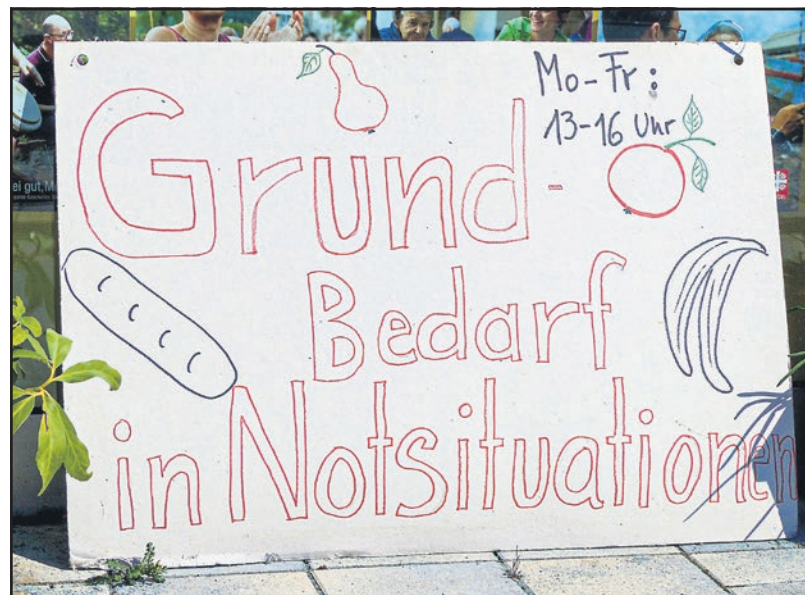 Mo-Fr:
13-16 Uhr
Grund-
Bedarf
in Notsituationen
ei gut, M